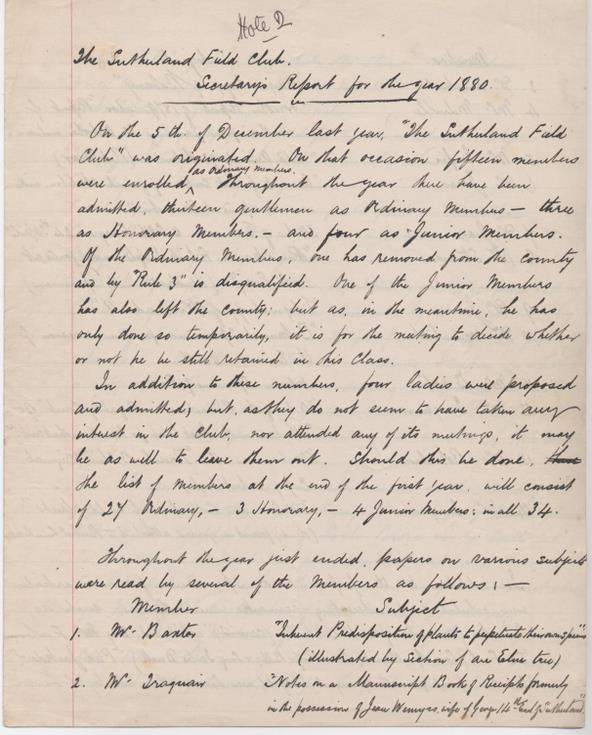 Note 2
The Sutherland Field Club.
Secretary's Report for the year 1880.
On the 5th. of December last year, "The Sutherland Field
Club" was originated. On that occasion fifteen members
as Ordinary members.
were enrolled, Throughout the year there have been
admitted, thirteen gentlemen as Ordinary Members — three
as Honorary Members, — and four as Junior Members.
Of the Ordinary Members, one has removed from the county
and by "Rule 3" is disqualified. One of the Junior Members
has also left the county; but as, in the meantime, he has
only done so temporarily, it is for the meeting to decide whether
or not he be still retained in this Class.
In addition to these numbers, four ladies were proposed
and admitted; but, as they do not seem to have taken any
interest in the Club, nor attended any of its meetings, it may
be as well to leave them out. Should this be done,
the list of members at the end of the first year, will consist
of 27 Ordinary, — 3 Honorary, — 4 Junior Members: in all 34.
Throughout the year just ended, papers on various subjects
were read by several of the Members as follows; —
Member Subject
1. Mr. Baxter "Inherent Predisposition of plants to perpetuate their own species",
(illustrated by Section of an Elm tree)
2. Mr. Traquair "Notes on a Manuscript Book of Receipts formerly
in the possession of Jean Wemyss, wife of George 14th Earl of Sutherland."